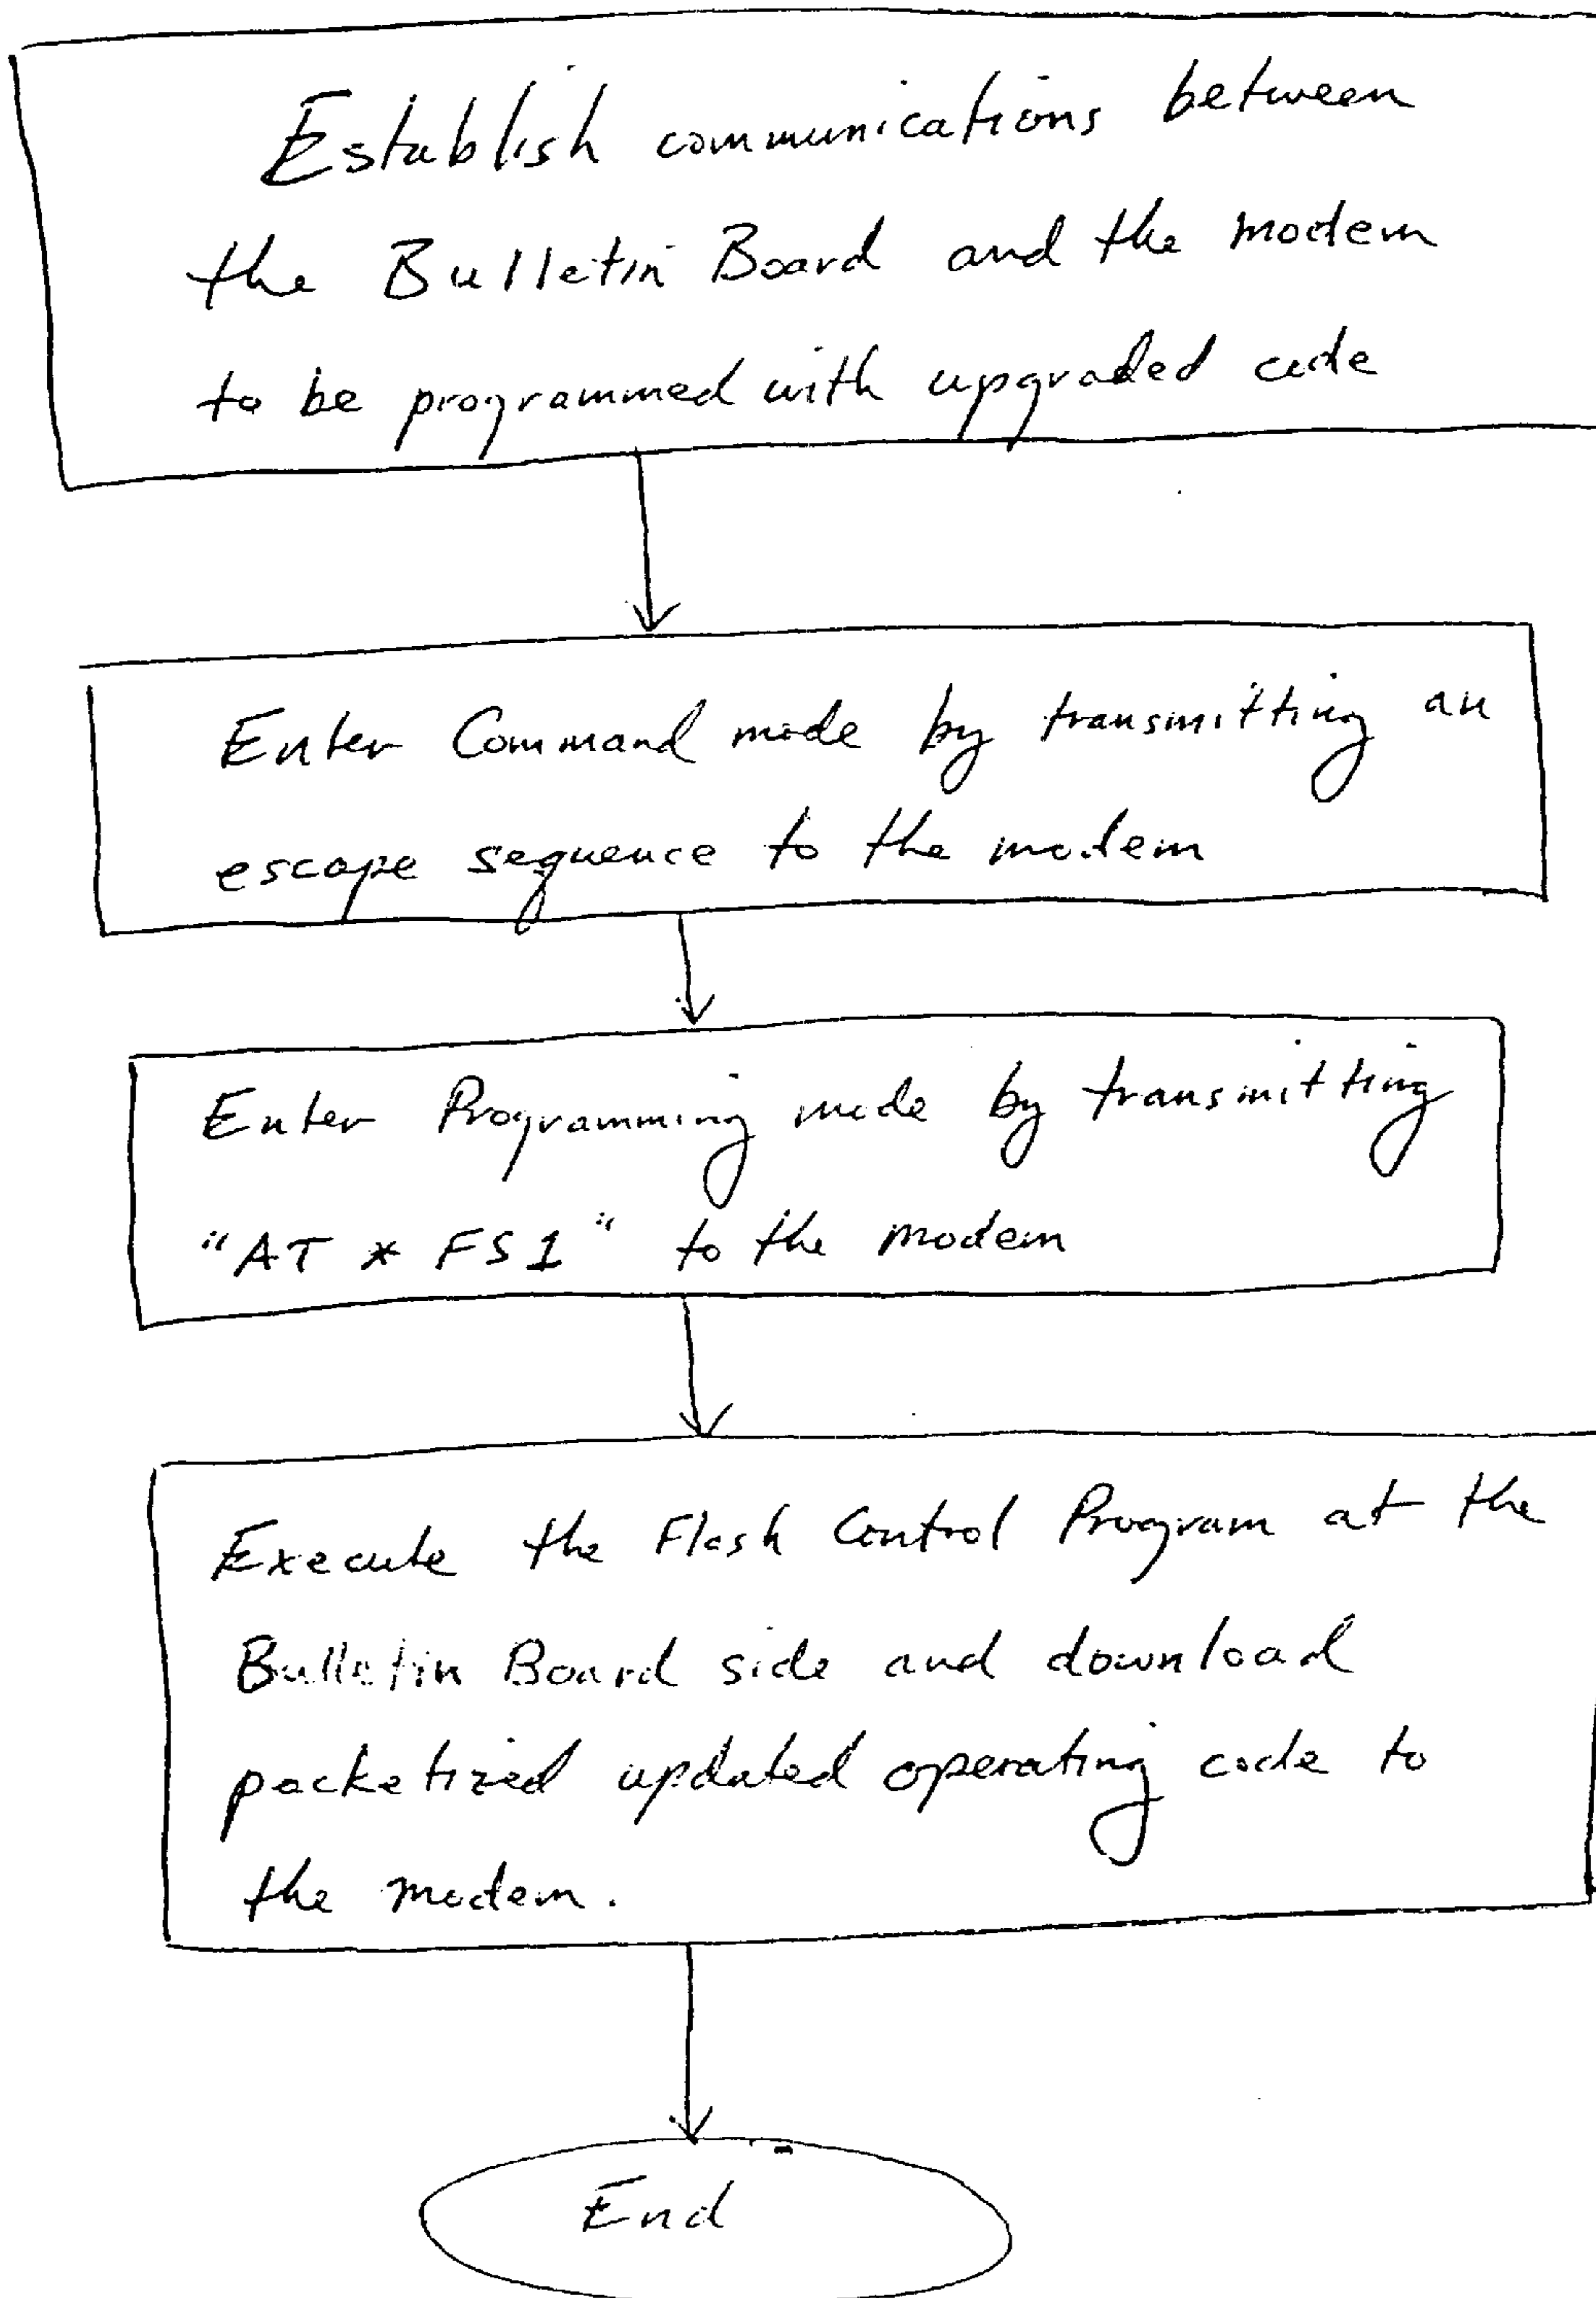 Establish communications between
the Bulletin Board and the modem
to be programmed with upgraded code
Enter Command mode by transmitting an
escape sequence to the modem
Enter Programming mode by transmitting
"AT * FS1" to the modem
Execute the Flash Control Program at the
Bulletin Board side and download
packetized updated operating code to
the modem.
End